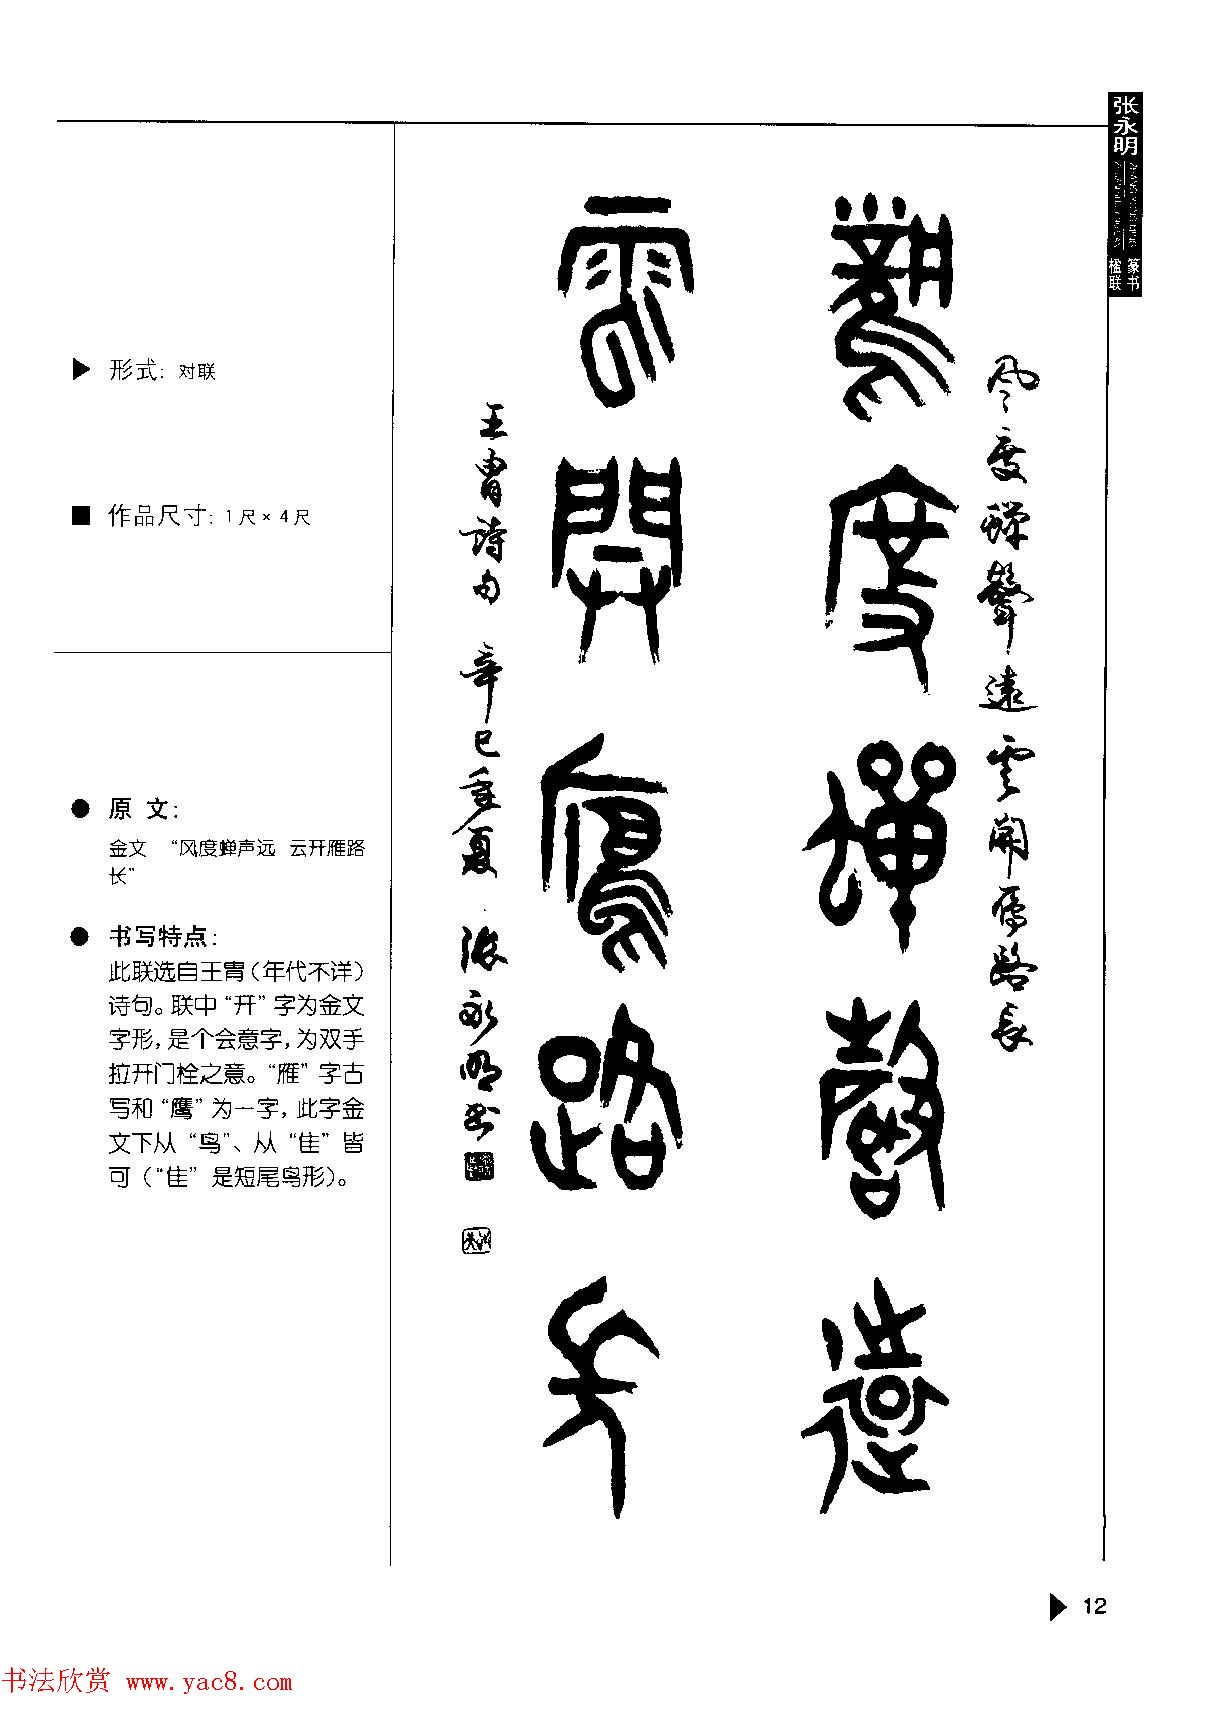 张永明
篆书
楹联
形式：对联
作品尺寸：1尺×4尺
原 文：
金文 “风度蝉声远 云开雁路
长”
书写特点：
此联选自王胄（年代不详）
诗句。联中“开”字为金文
字形，是个会意字，为双手
拉开门栓之意。“雁”字古
写和“鹰”为一字，此字金
文下从“鸟”、从“隹”皆
可（“隹”是短尾鸟形）。
風度蟬聲遠雲開雁路長
風度蟬聲遠
雲開雁路長
王胄詩句 辛巳重夏 張永明書
12
书法欣赏 www.yac8.com